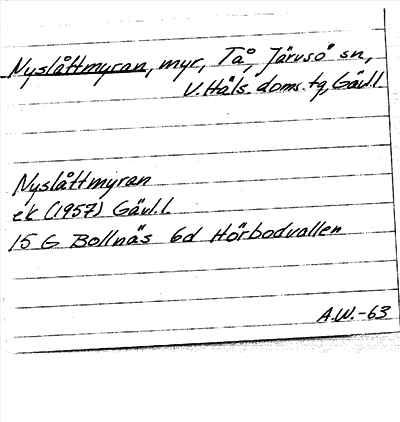 Nyslåttmyran, myr, Tå, Järvsö sn,
V. Häls. doms. tg, Gävl.l.
Nyslåttmyran
ek (1957) Gävl.l.
15 G Bollnäs 6d Hörbodvallen
A.W.-63